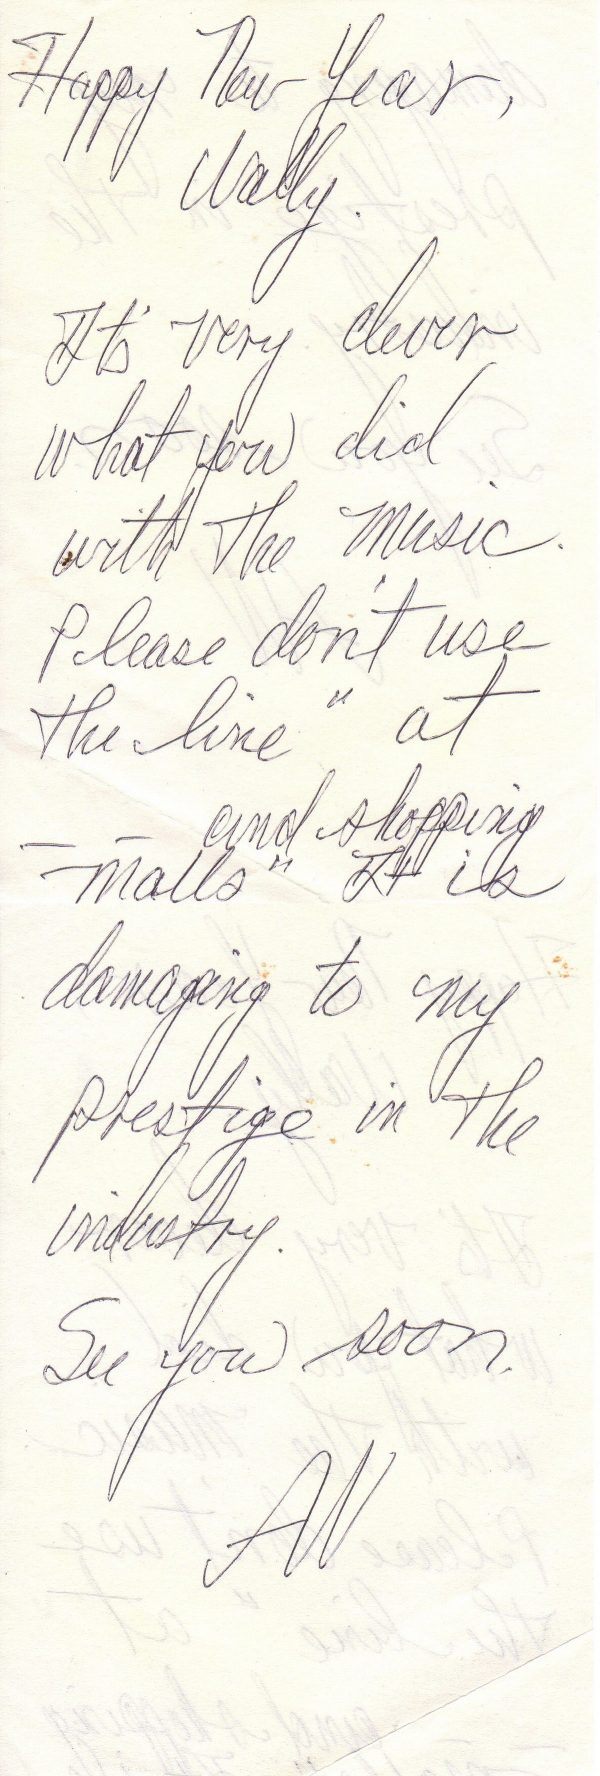 Happy New Year,
Wally.
It's very clever
what you did
with the music.
Please don't use
the line " at
and shopping
— — malls" It is
damaging to my
prestige in the
industry.
See you soon.
AV